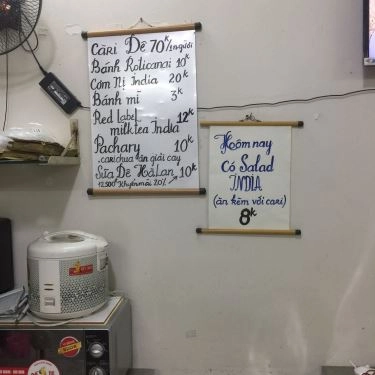 Cà Ri Dê 70k/1 người
Bánh Roticanai 10k
Cơm Nị India 20k
Bánh mì 3k
Red Label 12k
milktea India
Pachary 10k
Sữa Dê Hà Lan 10k
12.500 Khuyến mãi 20%
Hôm nay
Có Salad
INDIA
(ăn kèm với cari)
8k